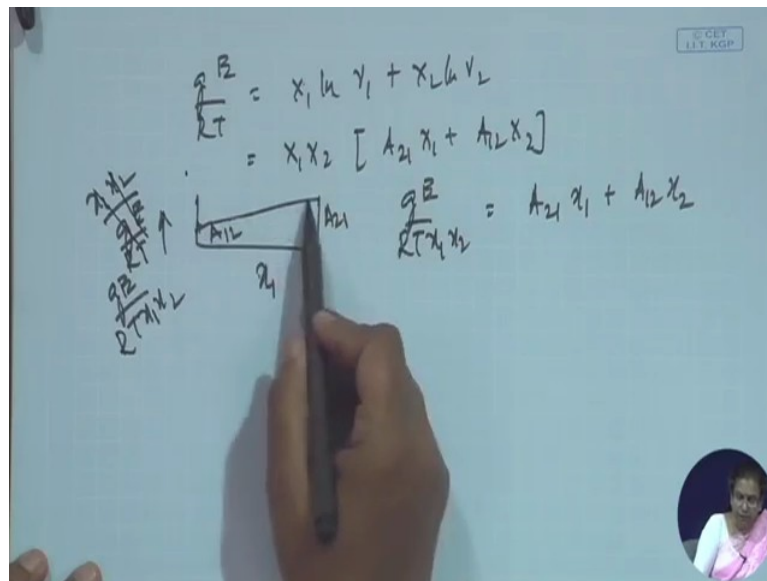 © CET
I.I.T. KGP
g^E/RT = x₁ ln γ₁ + x₂ ln γ₂
= x₁x₂ [A₂₁x₁ + A₁₂x₂]
g^E/RTx₁x₂ = A₂₁x₁ + A₁₂x₂
x₁x₂
g^E/RT ↑
g^E/RTx₁x₂
A₁₂
A₂₁
x₁